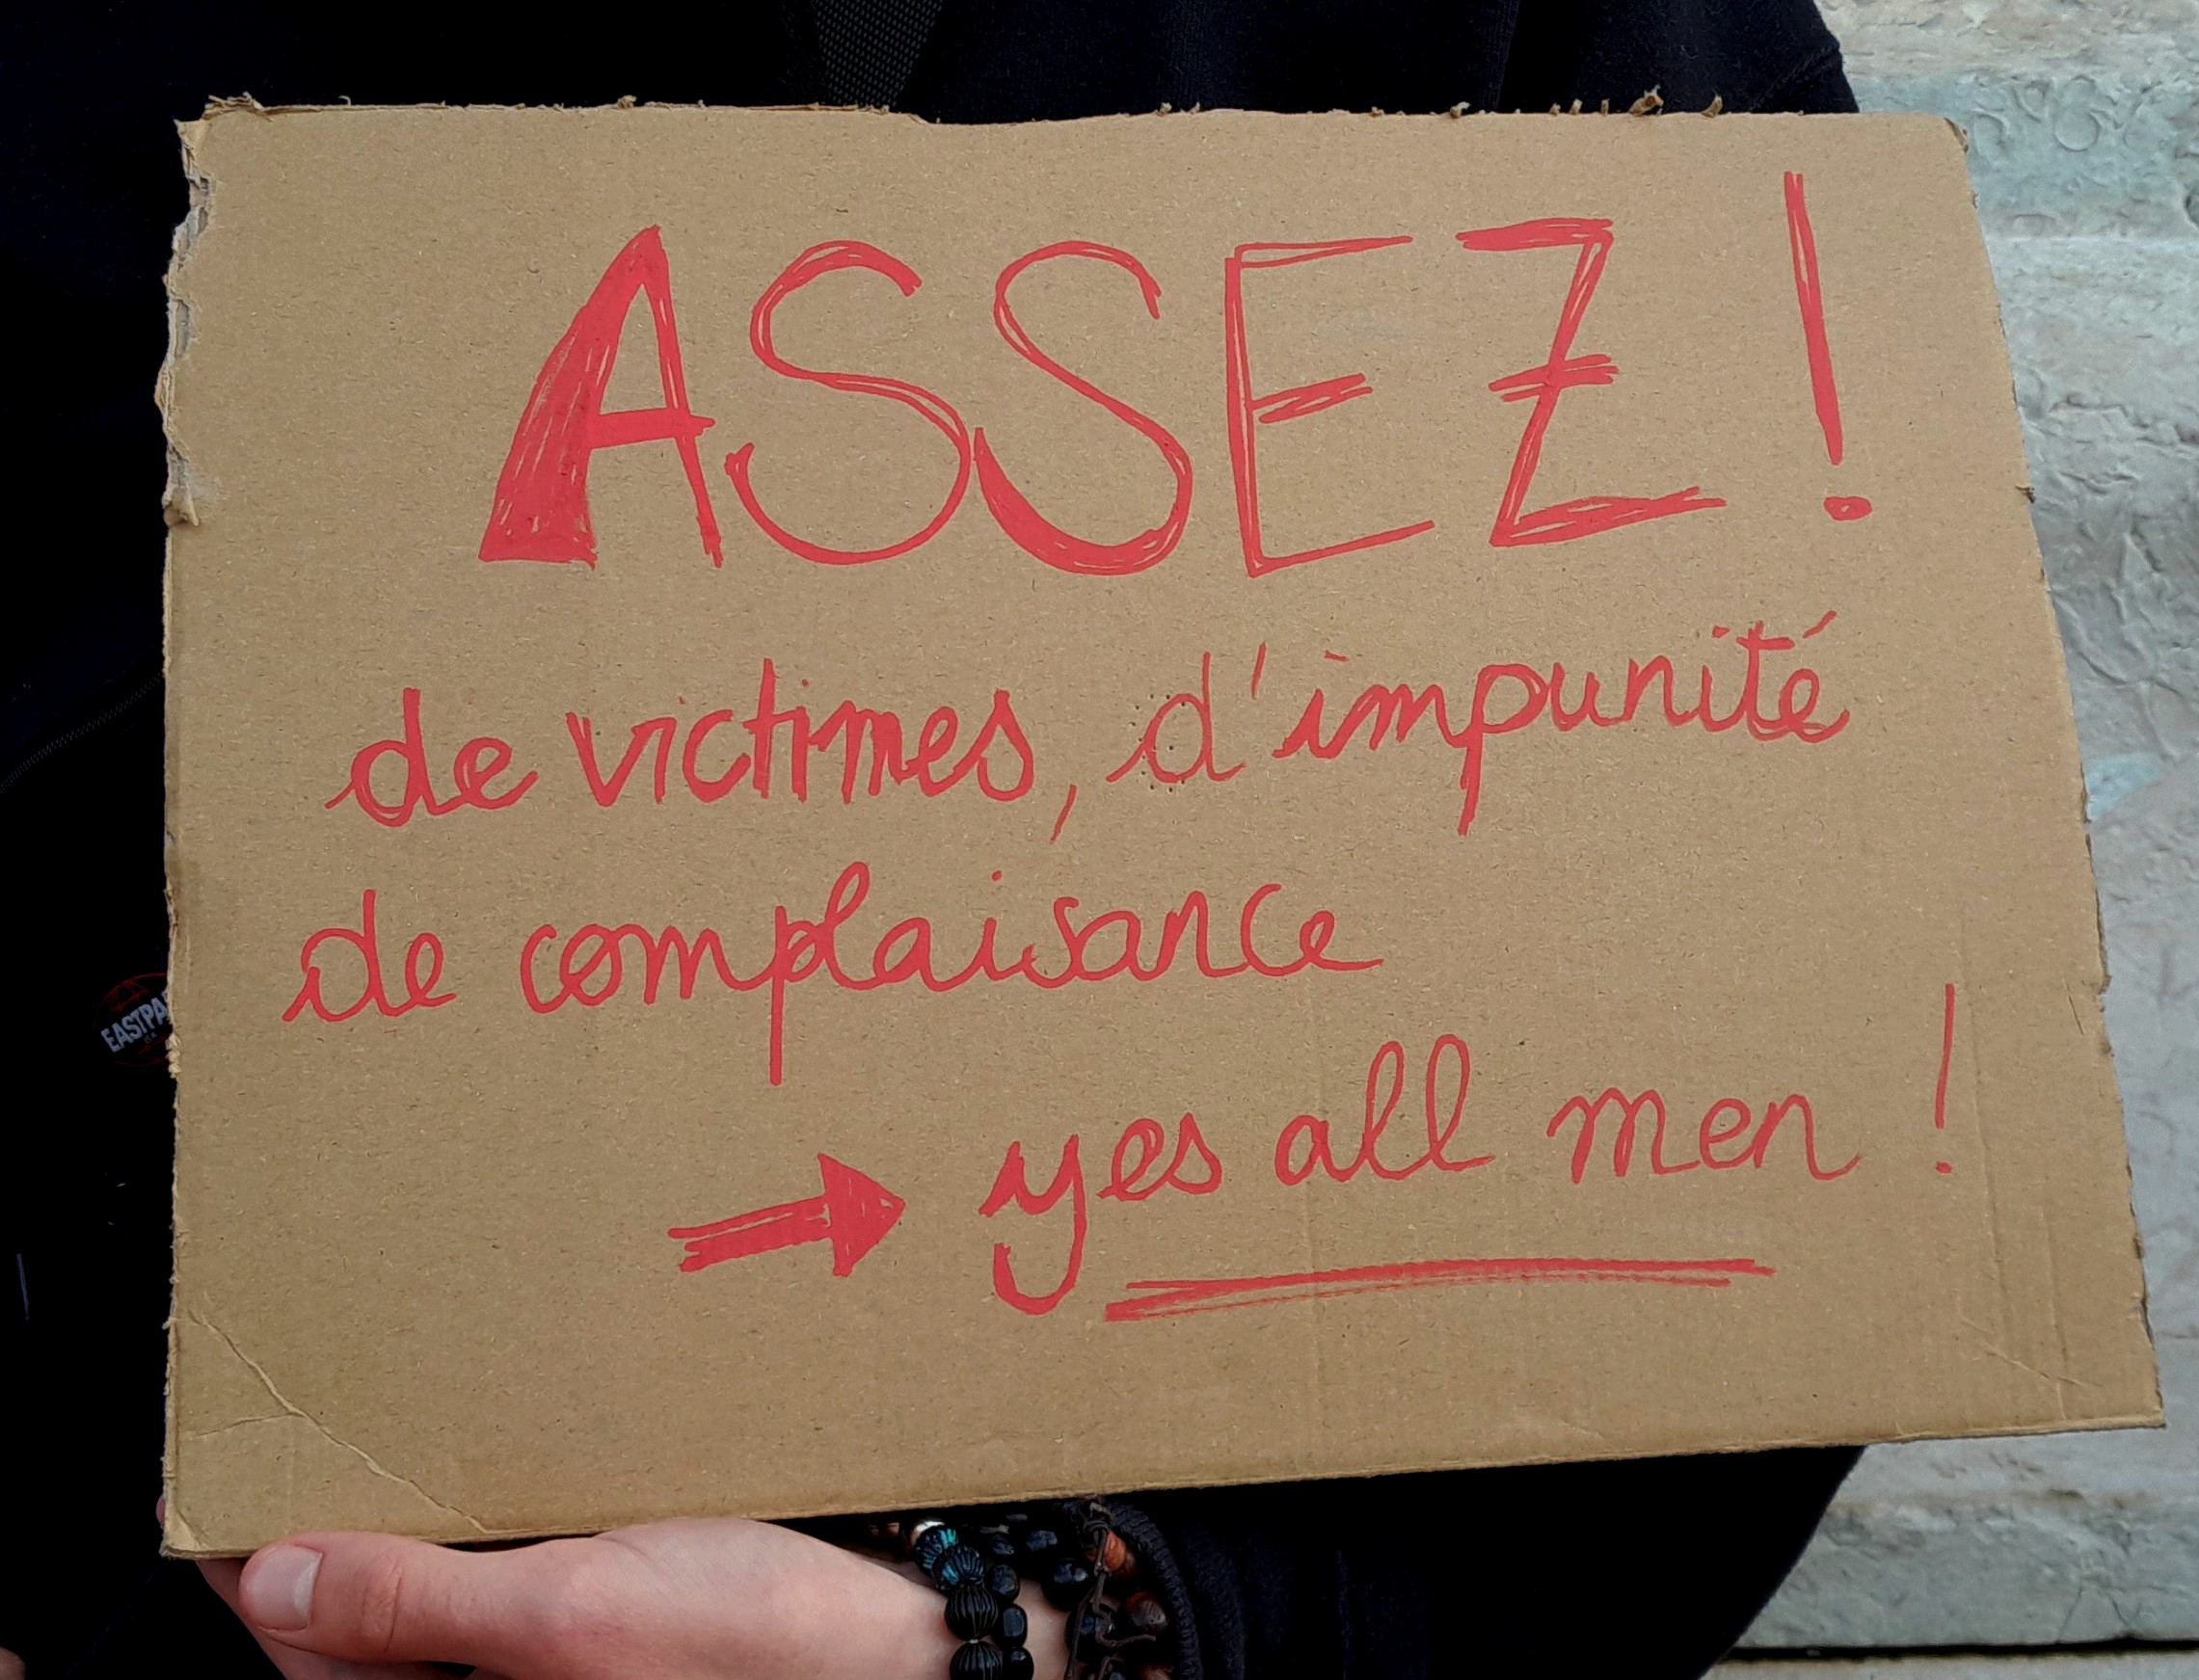 ASSEZ !
de victimes, d'impunité
de complaisance
→ yes all men !